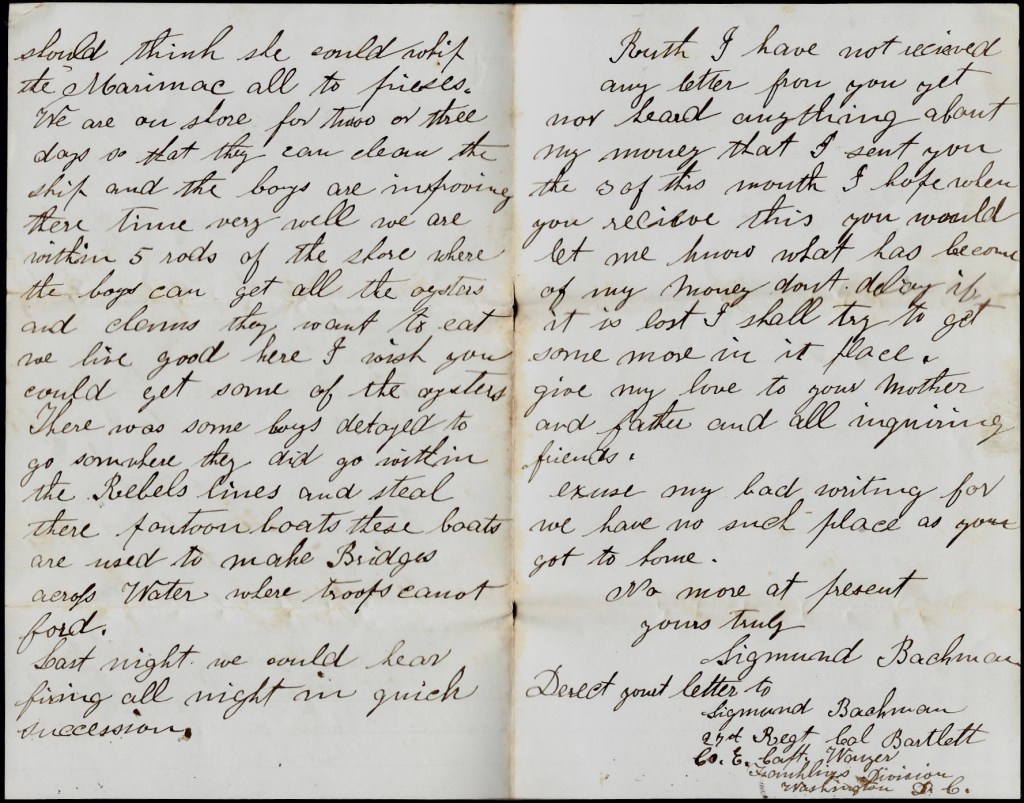 should think she could whip
the Marimac all to pieses.
We are on shore for two or three
days so that they can clean the
ship and the boys are improving
there time very well we are
within 5 rods of the shore where
the boys can get all the oysters
and clams they want to eat
we live good here I wish you
could get some of the oysters
There was some boys detayed to
go somwhere they did go within
the Rebels lines and steal
there pontoon boats these boats
are used to make Bridges
across Water where troops canot
ford.
Last night we could hear
firing all night in quick
succession.
Ruth I have not recieved
any letter from you yet
nor heard anything about
my money that I sent you
the 3 of this mouth I hope when
you recieve this you would
let me know what has become
of my money dont delay if
it is lost I shall try to get
some more in it place.
give my love to your Mother
and father and all inquiring
friends.
exuse my bad writing for
we have no such place as your
got to home.
No more at present
yours truly
Sigmund Bachman
Derect your letter to
Sigmund Bachman
27d Regt Col Bartlett
Co. E. Capt. Wanzer
Franklins Division
Washington D. C.